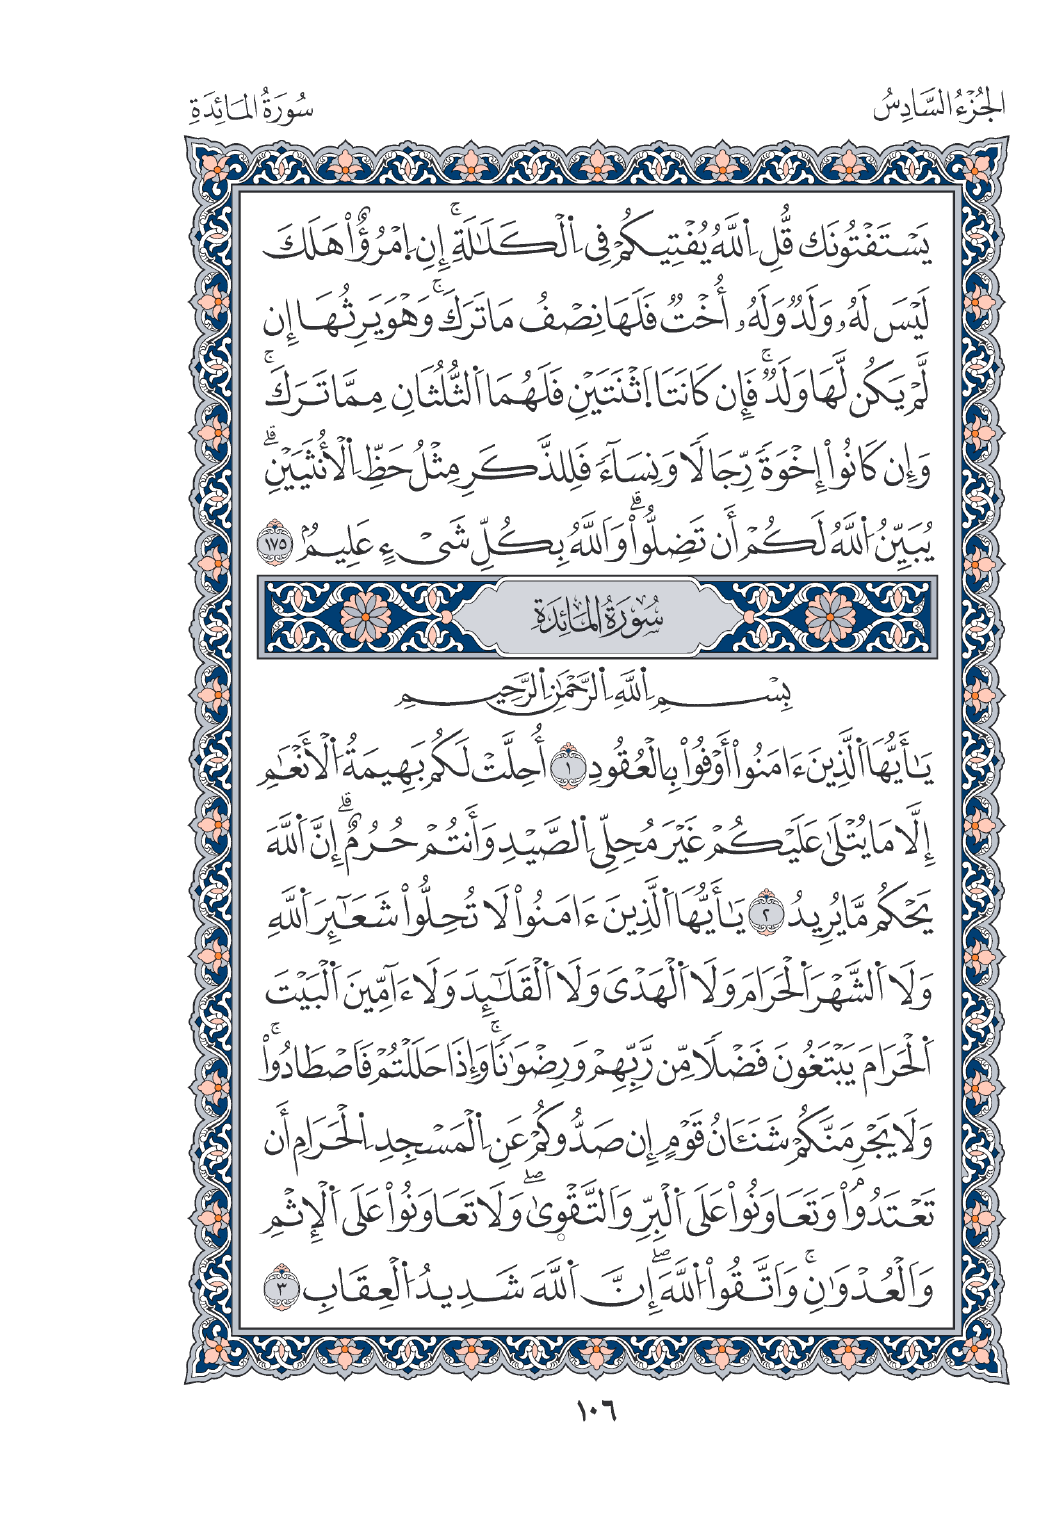 الجُزْءُ السَّادِسُ
سُورَةُ المَائِدَةِ
يَسْتَفْتُونَك قُّلِ اِ۬للَّهُ يُفْتِيكُمْ فِى اِ۬لْكَلَٰلَةِۚ إِنِ اِ۪مْرُؤٌاْ هَلَكَ
لَيْسَ لَهُۥ وَلَدٌ وَلَهُۥ أُخْتٌ فَلَهَا نِصْفُ مَا تَرَكَۚ وَهْوَ يَرِثُهَا إِن
لَّمْ يَكُن لَّهَا وَلَدٌۚ فَإِن كَانَتَا اَ۪ثْنَتَيْنِ فَلَهُمَا اَ۬لثُّلُثَانِ مِمَّا تَرَكَۚ
وَإِن كَانُواْ إِخْوَةً رِّجَالًا وَنِسَآءً فَلِلذَّكَرِ مِثْلُ حَظِّ اِ۬لْأُنثَيَيْنِۗ
يُبَيِّنُ اُ۬للَّهُ لَكُمْ أَن تَضِلُّواْۗ وَاَللَّهُ بِكُلِّ شَىْءٍ عَلِيمٌۢ ١٧٥
سُورَةُ المَائِدَةِ
بِسْمِ اِ۬للَّهِ اِ۬لرَّحْمَٰنِ اِ۬لرَّحِيمِ
يَٰأَيُّهَا اَ۬لَّذِينَ ءَامَنُواْ أَوْفُواْ بِالْعُقُودِ ١ أُحِلَّتْ لَكُم بَهِيمَةُ اُ۬لْأَنْعَٰمِ
إِلَّا مَا يُتْلَىٰ عَلَيْكُمْ غَيْرَ مُحِلِّى اِ۬لصَّيْدِ وَأَنتُمْ حُرُمٌۗ إِنَّ اَ۬للَّهَ
يَحْكُم مَّا يُرِيدُ ٢ يَٰأَيُّهَا اَ۬لَّذِينَ ءَامَنُواْ لَا تُحِلُّواْ شَعَٰٓئِرَ اَ۬للَّهِ
وَلَا اَ۬لشَّهْرَ اَ۬لْحَرَامَ وَلَا اَ۬لْهَدْىَ وَلَا اَ۬لْقَلَٰٓئِدَ وَلَا ءَآمِّينَ اَ۬لْبَيْتَ
اَ۬لْحَرَامَ يَبْتَغُونَ فَضْلًا مِّن رَّبِّهِمْ وَرِضْوَٰنًاۚ وَإِذَا حَلَلْتُمْ فَاصْطَادُواْۚ
وَلَا يَجْرِمَنَّكُمْ شَنَـَٔانُ قَوْمٍ إِن صَدُّوكُمْ عَنِ اِ۬لْمَسْجِدِ اِ۬لْحَرَامِ أَن
تَعْتَدُواْۘ وَتَعَاوَنُواْ عَلَى اَ۬لْبِرِّ وَاَلتَّقْوٜىٰۖ وَلَا تَعَاوَنُواْ عَلَى اَ۬لْإِثْمِ
وَاَلْعُدْوَٰنِۚ وَاَتَّقُواْ اُ۬للَّهَۖ إِنَّ اَ۬للَّهَ شَدِيدُ اُ۬لْعِقَابِ ٣
١٠٦